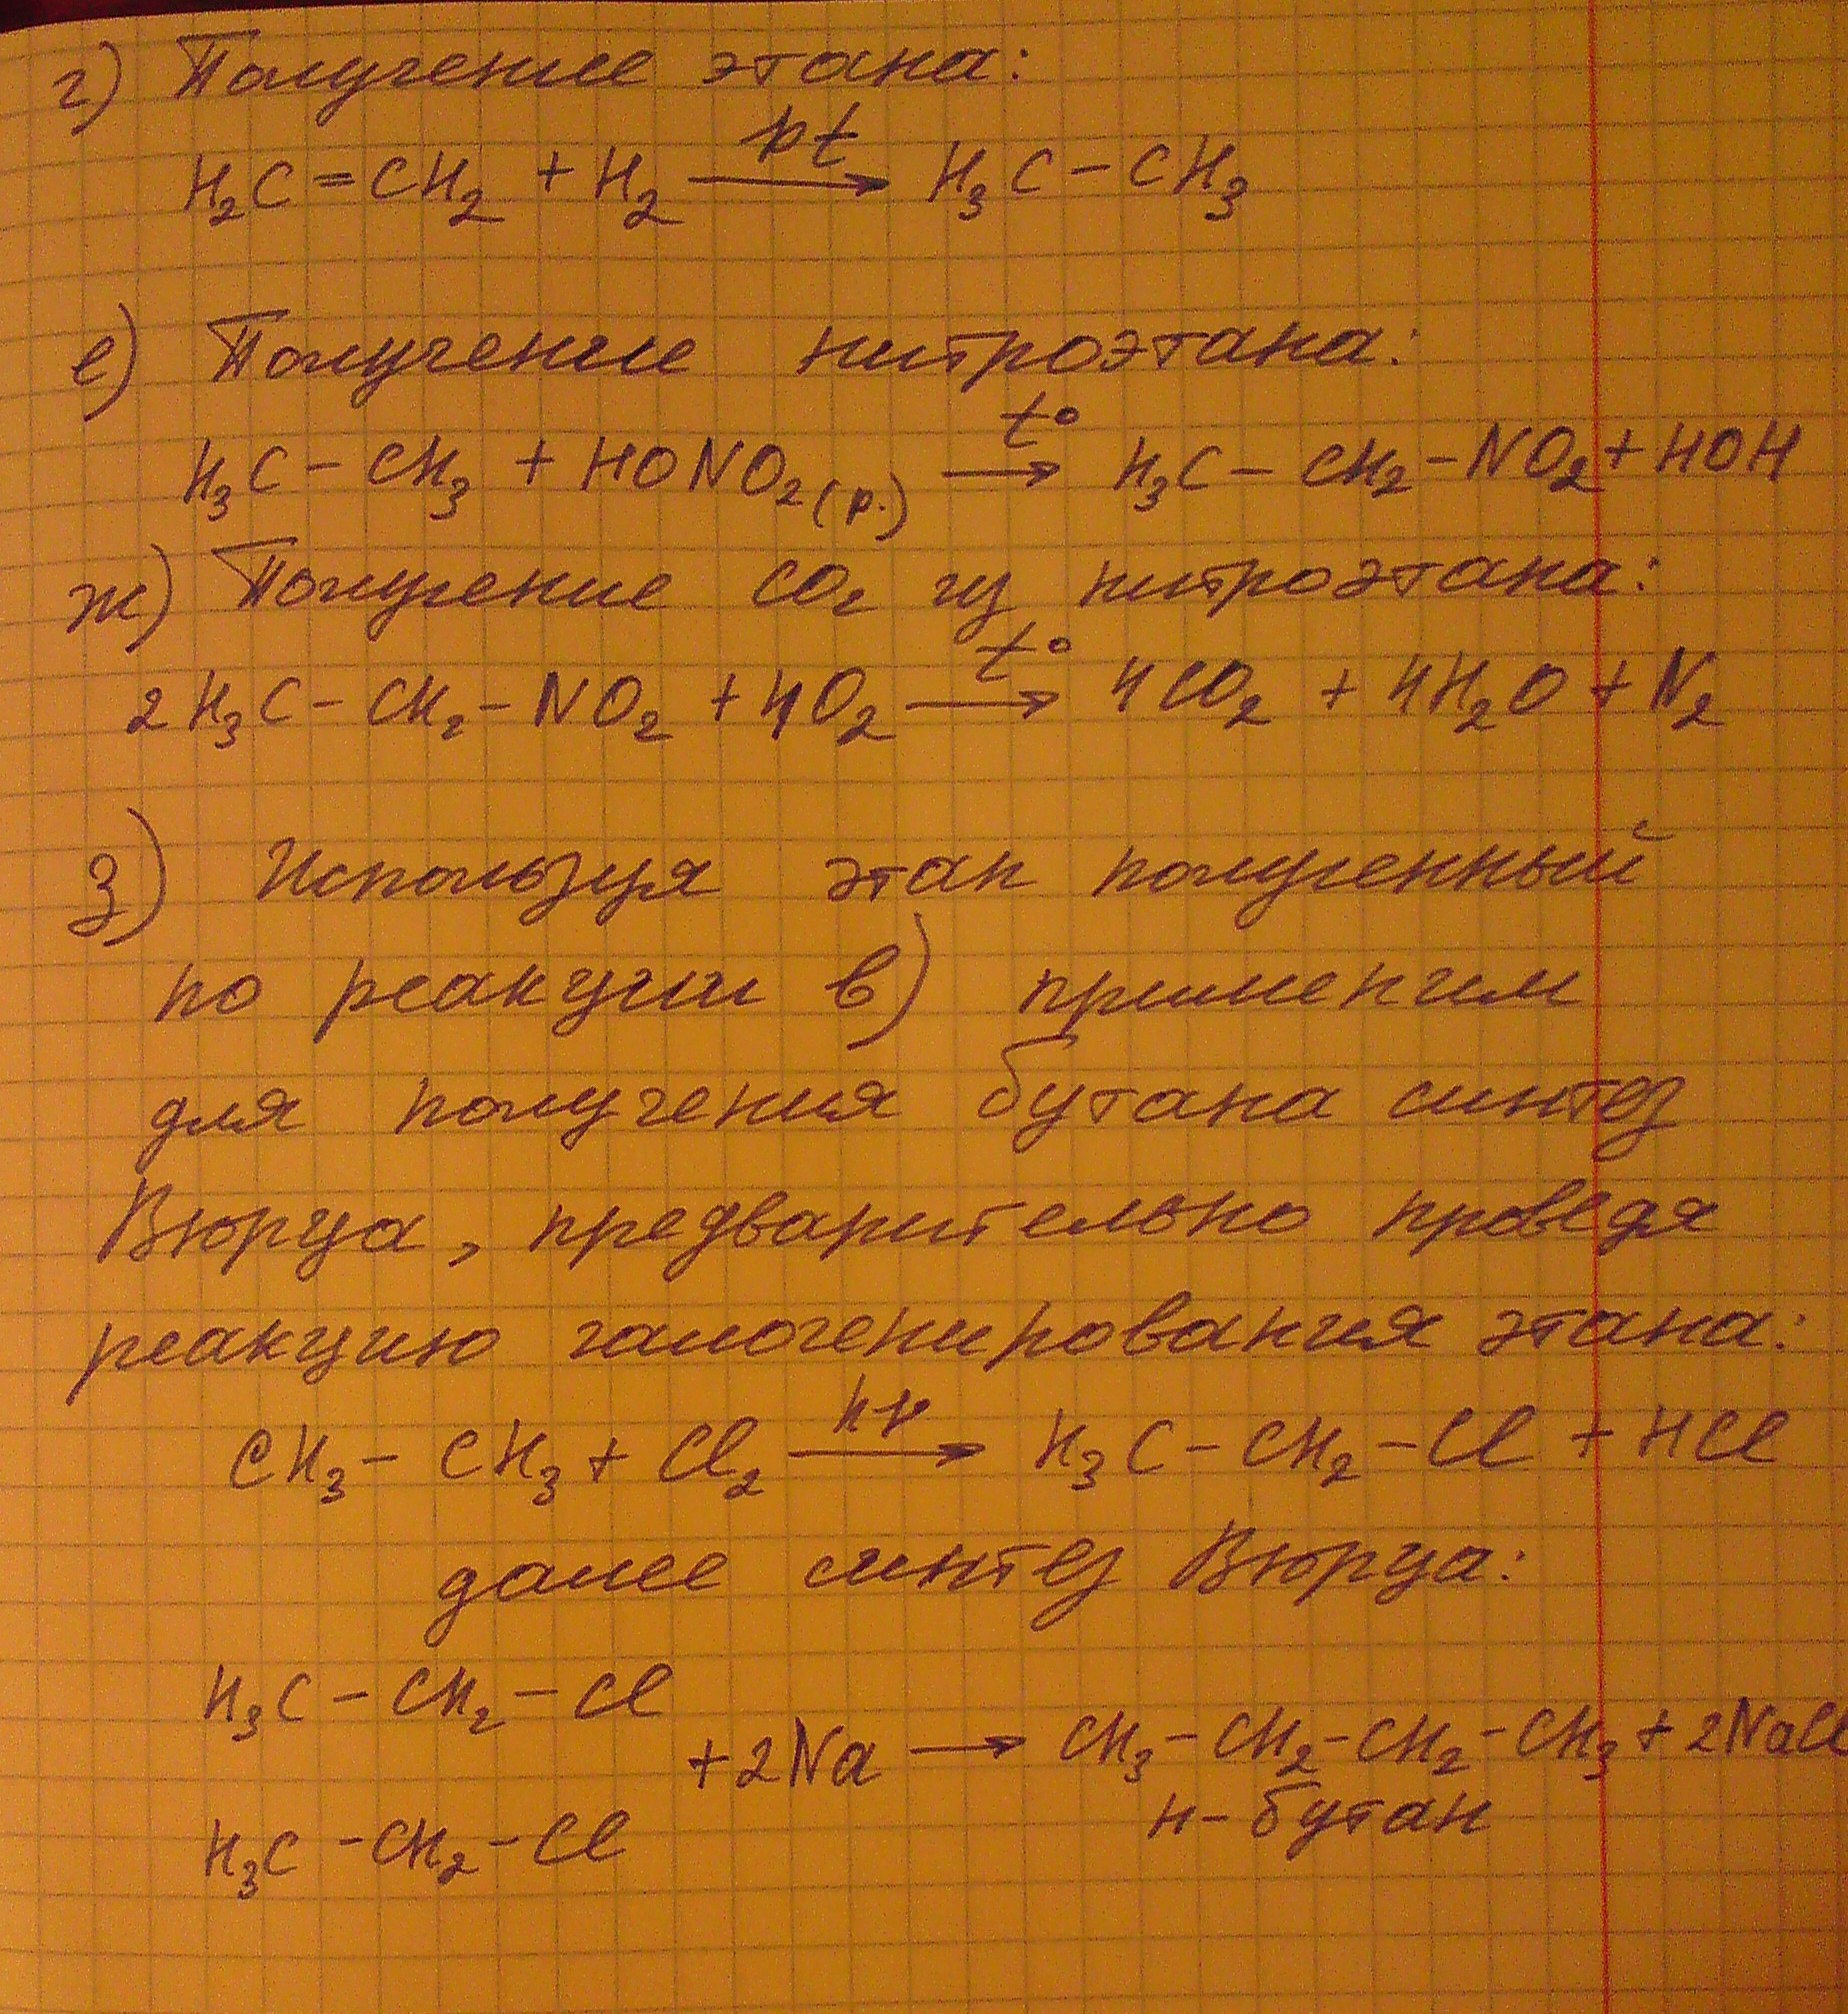 г) Получение этана:
H₂C=CH₂ + H₂ —pt→ H₃C-CH₃
е) Получение нитроэтана:
H₃C-CH₃ + HONO₂(р.) —t°→ H₃C-CH₂-NO₂ + HOH
ж) Получение CO₂ из нитроэтана:
2H₃C-CH₂-NO₂ + 4O₂ —t°→ 4CO₂ + 4H₂O + N₂
з) Используя этан полученный
по реакции в) применим
для получения бутана синтез
Вюрца, предварительно проведя
реакцию галогенирования этана:
CH₃-CH₃ + Cl₂ —hν→ H₃C-CH₂-Cl + HCl
далее синтез Вюрца:
H₃C-CH₂-Cl
+2Na → CH₃-CH₂-CH₂-CH₃ + 2NaCl
н-бутан
H₃C-CH₂-Cl